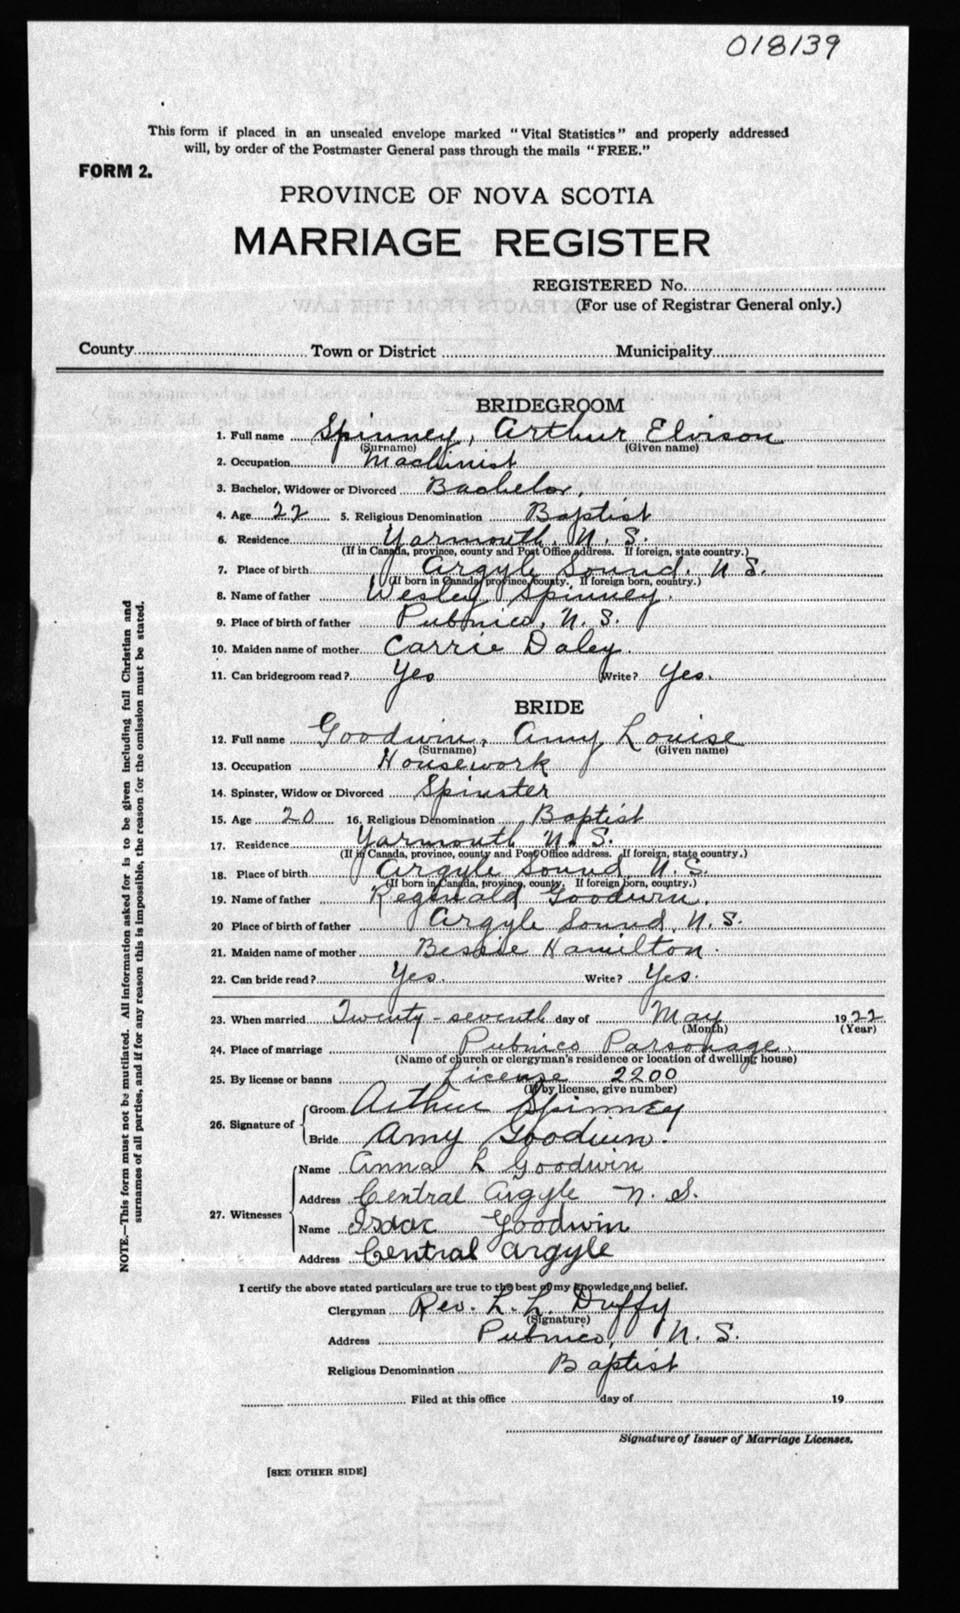 018139
This form if placed in an unsealed envelope marked "Vital Statistics" and properly addressed
will, by order of the Postmaster General pass through the mails "FREE."
FORM 2.
PROVINCE OF NOVA SCOTIA
MARRIAGE REGISTER
REGISTERED No.
(For use of Registrar General only.)
County Town or District Municipality
BRIDEGROOM
1. Full name Spinney, Arthur Elvison
(Surname) (Given name)
2. Occupation Machinist
3. Bachelor, Widower or Divorced Bachelor.
4. Age 22 5. Religious Denomination Baptist
6. Residence Yarmouth, N. S.
(If in Canada, province, county and Post Office address. If foreign, state country.)
7. Place of birth Argyle Sound, N S.
(If born in Canada, province, county. If foreign born, country.)
8. Name of father Wesley Spinney.
9. Place of birth of father Pubnico, N. S.
10. Maiden name of mother Carrie Daley.
11. Can bridegroom read? Yes Write? Yes.
BRIDE
12. Full name Goodwin, Amy Louise
(Surname) (Given name)
13. Occupation Housework
14. Spinster, Widow or Divorced Spinster
15. Age 20 16. Religious Denomination Baptist
17. Residence Yarmouth N. S.
(If in Canada, province, county and Post Office address. If foreign, state country.)
18. Place of birth Argyle Sound, N. S.
(If born in Canada, province, county. If foreign born, country.)
19. Name of father Reginald Goodwin.
20 Place of birth of father Argyle Sound, N. S.
21. Maiden name of mother Bessie Hamilton.
22. Can bride read? Yes. Write? Yes.
23. When married Twenty-seventh day of May 1922
(Month) (Year)
24. Place of marriage Pubnico Parsonage.
(Name of church or clergyman's residence or location of dwelling house)
25. By license or banns License 2200
(If by license, give number)
26. Signature of
Groom Arthur Spinney
Bride Amy Goodwin.
27. Witnesses
Name Anna L Goodwin
Address Central Argyle N. S.
Name Isaac Goodwin
Address Central Argyle
I certify the above stated particulars are true to the best of my knowledge and belief.
Clergyman Rev. L. L. Duffy
(Signature)
Address Pubnico, N. S.
Religious Denomination Baptist
Filed at this office day of 19
Signature of Issuer of Marriage Licenses.
[SEE OTHER SIDE]
NOTE.—This form must not be mutilated. All information asked for is to be given including full Christian and
surnames of all parties, and if for any reason this is impossible, the reason for the omission must be stated.